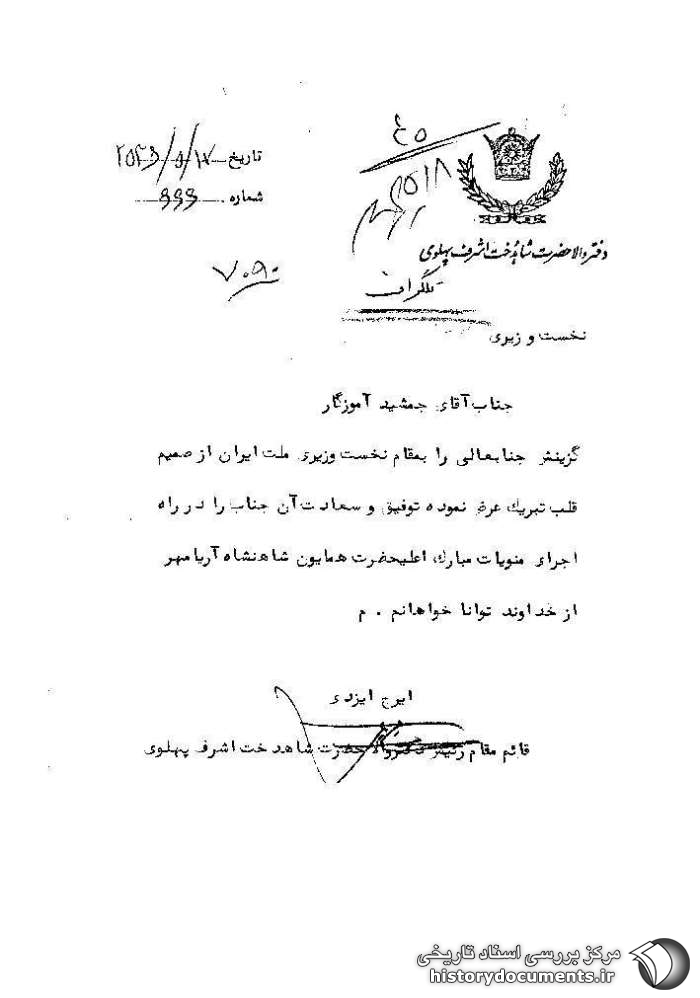 تاریخ ۲۵۳۶/۵/۱۷
شماره ۶۶۶
۴۵
۵۱۸
دفتر والاحضرت شاهدخت اشرف پهلوی
۷۰۹۰
تلگراف
نخست وزیری
جناب آقای جمشید آموزگار
گزینش جنابعالی را بمقام نخست وزیری ملت ایران از صمیم
قلب تبریک عرض نموده توفیق و سعادت آن جناب را در راه
اجرای منویات مبارک اعلیحضرت همایون شاهنشاه آریامهر
از خداوند توانا خواهانم . م
ایرج ایزدی
قائم مقام رئیس دفتر والاحضرت شاهدخت اشرف پهلوی
مرکز بررسی اسناد تاریخی
historydocuments.ir